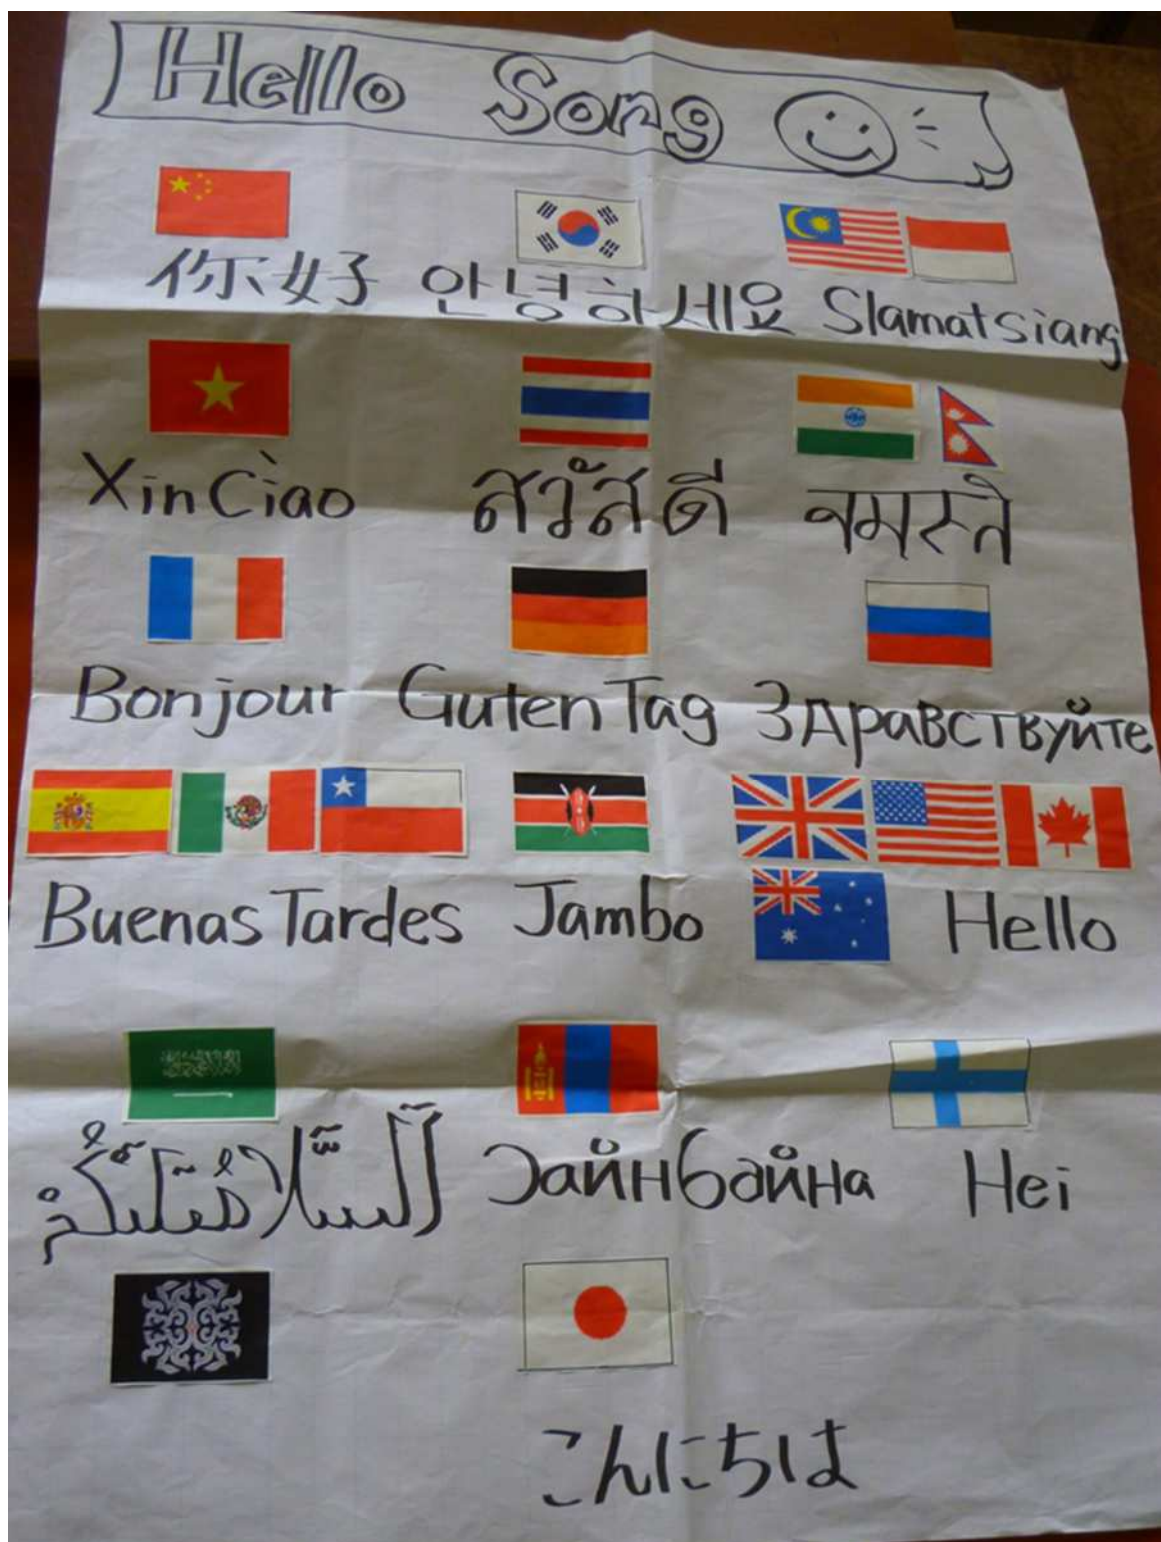 Hello Song
你好 안녕하세요 Slamat siang
Xin Ciào สวัสดี नमस्ते
Bonjour Guten Tag Здравствуйте
Buenas Tardes Jambo Hello
اَلسَّلَامُ عَلَيْكُمْ Зайн байна Hei
こんにちは